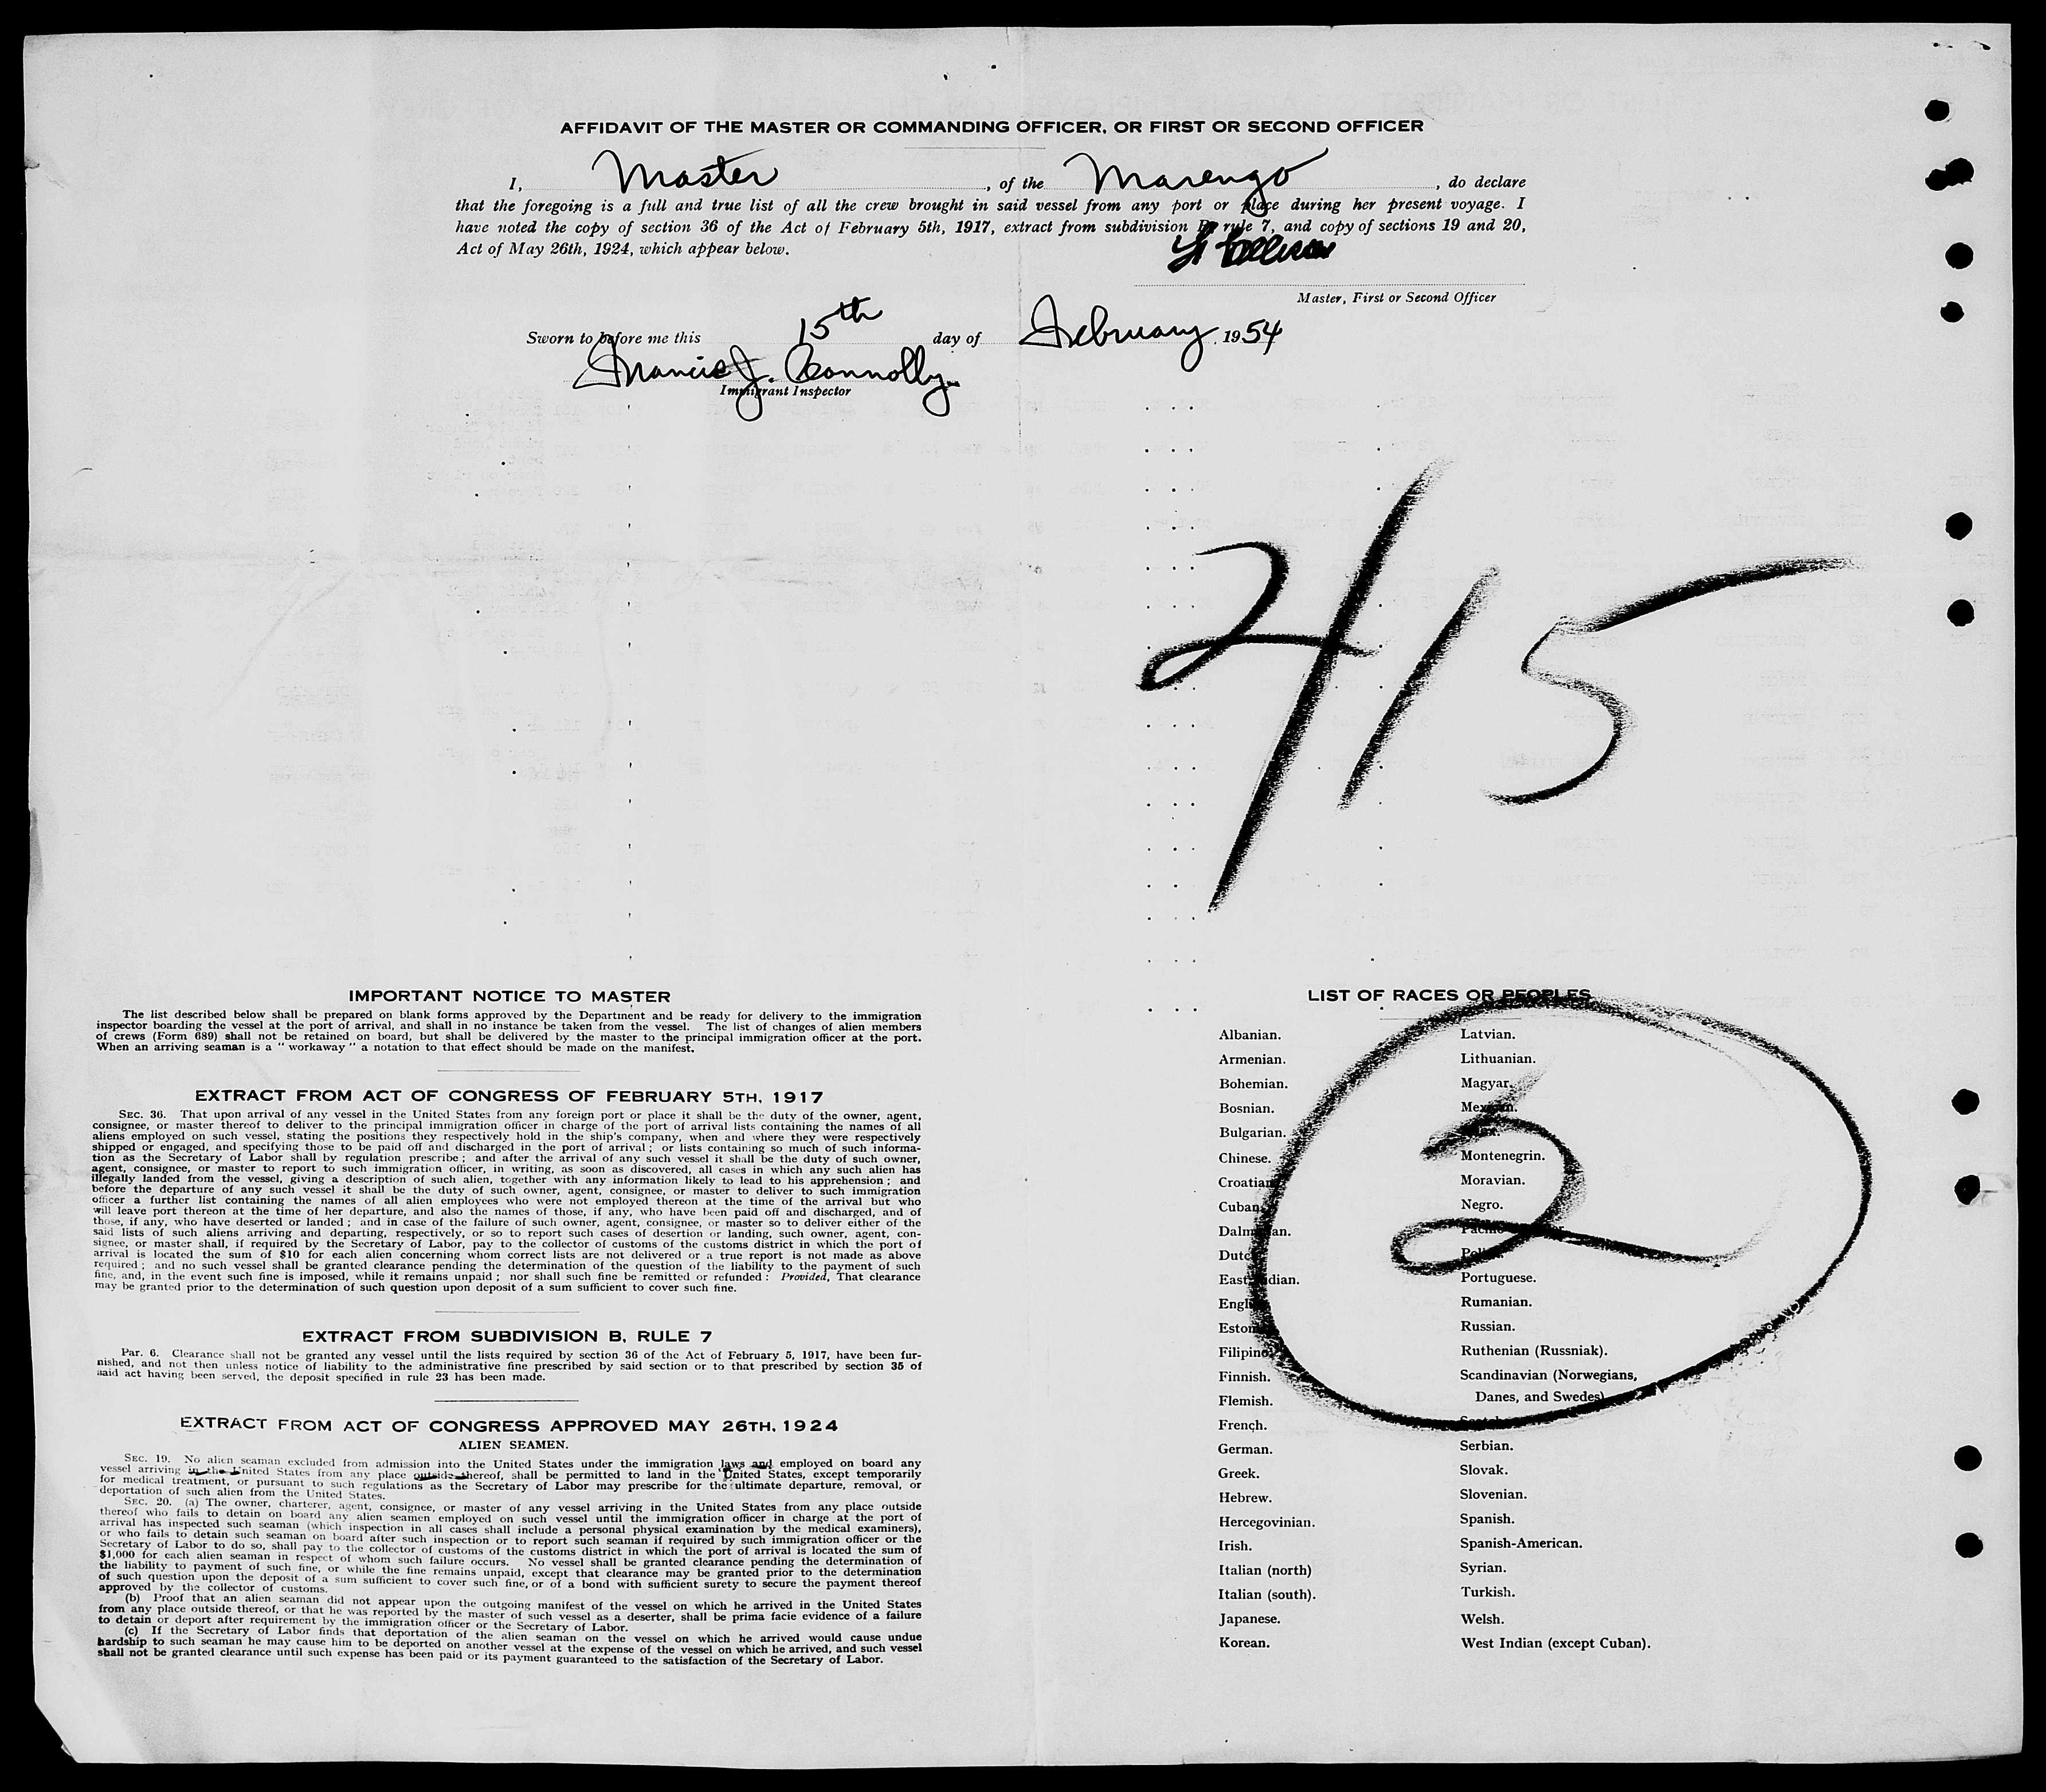 AFFIDAVIT OF THE MASTER OR COMMANDING OFFICER, OR FIRST OR SECOND OFFICER
I, Master, of the Marengo, do declare
that the foregoing is a full and true list of all the crew brought in said vessel from any port or place during her present voyage. I
have noted the copy of section 36 of the Act of February 5th, 1917, extract from subdivision B, rule 7, and copy of sections 19 and 20,
Act of May 26th, 1924, which appear below.
Master, First or Second Officer
Sworn to before me this 15th day of February 1954
Francis J. Connolly
Immigrant Inspector
2/15
IMPORTANT NOTICE TO MASTER
The list described below shall be prepared on blank forms approved by the Department and be ready for delivery to the immigration
inspector boarding the vessel at the port of arrival, and shall in no instance be taken from the vessel. The list of changes of alien members
of crews (Form 689) shall not be retained on board, but shall be delivered by the master to the principal immigration officer at the port.
When an arriving seaman is a "workaway" a notation to that effect should be made on the manifest.
EXTRACT FROM ACT OF CONGRESS OF FEBRUARY 5TH, 1917
SEC. 36. That upon arrival of any vessel in the United States from any foreign port or place it shall be the duty of the owner, agent,
consignee, or master thereof to deliver to the principal immigration officer in charge of the port of arrival lists containing the names of all
aliens employed on such vessel, stating the positions they respectively hold in the ship's company, when and where they were respectively
shipped or engaged, and specifying those to be paid off and discharged in the port of arrival; or lists containing so much of such informa-
tion as the Secretary of Labor shall by regulation prescribe; and after the arrival of any such vessel it shall be the duty of such owner,
agent, consignee, or master to report to such immigration officer, in writing, as soon as discovered, all cases in which any such alien has
illegally landed from the vessel, giving a description of such alien, together with any information likely to lead to his apprehension; and
before the departure of any such vessel it shall be the duty of such owner, agent, consignee, or master to deliver to such immigration
officer a further list containing the names of all alien employees who were not employed thereon at the time of the arrival but who
will leave port thereon at the time of her departure, and also the names of those, if any, who have been paid off and discharged, and of
those, if any, who have deserted or landed; and in case of the failure of such owner, agent, consignee, or master so to deliver either of the
said lists of such aliens arriving and departing, respectively, or so to report such cases of desertion or landing, such owner, agent, con-
signee, or master shall, if required by the Secretary of Labor, pay to the collector of customs of the customs district in which the port of
arrival is located the sum of $10 for each alien concerning whom correct lists are not delivered or a true report is not made as above
required; and no such vessel shall be granted clearance pending the determination of the question of the liability to the payment of such
fine, and, in the event such fine is imposed, while it remains unpaid; nor shall such fine be remitted or refunded: Provided, That clearance
may be granted prior to the determination of such question upon deposit of a sum sufficient to cover such fine.
EXTRACT FROM SUBDIVISION B, RULE 7
Par. 6. Clearance shall not be granted any vessel until the lists required by section 36 of the Act of February 5, 1917, have been fur-
nished, and not then unless notice of liability to the administrative fine prescribed by said section or to that prescribed by section 35 of
said act having been served, the deposit specified in rule 23 has been made.
EXTRACT FROM ACT OF CONGRESS APPROVED MAY 26TH, 1924
ALIEN SEAMEN.
SEC. 19. No alien seaman excluded from admission into the United States under the immigration laws and employed on board any
vessel arriving in the United States from any place outside thereof, shall be permitted to land in the United States, except temporarily
for medical treatment, or pursuant to such regulations as the Secretary of Labor may prescribe for the ultimate departure, removal, or
deportation of such alien from the United States.
SEC. 20. (a) The owner, charterer, agent, consignee, or master of any vessel arriving in the United States from any place outside
thereof who fails to detain on board any alien seamen employed on such vessel until the immigration officer in charge at the port of
arrival has inspected such seaman (which inspection in all cases shall include a personal physical examination by the medical examiners),
or who fails to detain such seaman on board after such inspection or to report such seaman if required by such immigration officer or the
Secretary of Labor to do so, shall pay to the collector of customs of the customs district in which the port of arrival is located the sum of
$1,000 for each alien seaman in respect of whom such failure occurs. No vessel shall be granted clearance pending the determination of
the liability to payment of such fine, or while the fine remains unpaid, except that clearance may be granted prior to the determination
of such question upon the deposit of a sum sufficient to cover such fine, or of a bond with sufficient surety to secure the payment thereof
approved by the collector of customs.
(b) Proof that an alien seaman did not appear upon the outgoing manifest of the vessel on which he arrived in the United States
from any place outside thereof, or that he was reported by the master of such vessel as a deserter, shall be prima facie evidence of a failure
to detain or deport after requirement by the immigration officer or the Secretary of Labor.
(c) If the Secretary of Labor finds that deportation of the alien seaman on the vessel on which he arrived would cause undue
hardship to such seaman he may cause him to be deported on another vessel at the expense of the vessel on which he arrived, and such vessel
shall not be granted clearance until such expense has been paid or its payment guaranteed to the satisfaction of the Secretary of Labor.
LIST OF RACES OR PEOPLES
Albanian.
Armenian.
Bohemian.
Bosnian.
Bulgarian.
Chinese.
Croatian.
Cuban.
Dalmatian.
Dutch.
East Indian.
English.
Estonian.
Filipino.
Finnish.
Flemish.
French.
German.
Greek.
Hebrew.
Hercegovinian.
Irish.
Italian (north)
Italian (south).
Japanese.
Korean.
Latvian.
Lithuanian.
Magyar.
Mexican.
Montenegrin.
Moravian.
Negro.
Portuguese.
Rumanian.
Russian.
Ruthenian (Russniak).
Scandinavian (Norwegians,
Danes, and Swedes)
Serbian.
Slovak.
Slovenian.
Spanish.
Spanish-American.
Syrian.
Turkish.
Welsh.
West Indian (except Cuban).
2